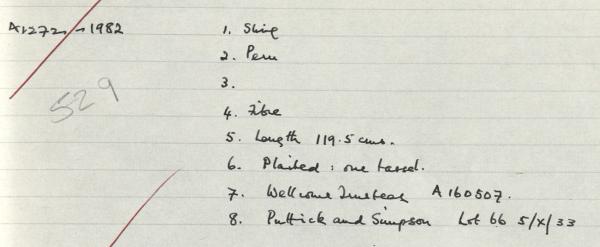 A1272 → 1982
1. Sling
2. Peru
3.
529
4. Fibre
5. Length 119.5 cms.
6. Plaited : one tassel.
7. Wellcome Trustees A 160507.
8. Puttick and Simpson Lot 66 5/X/33